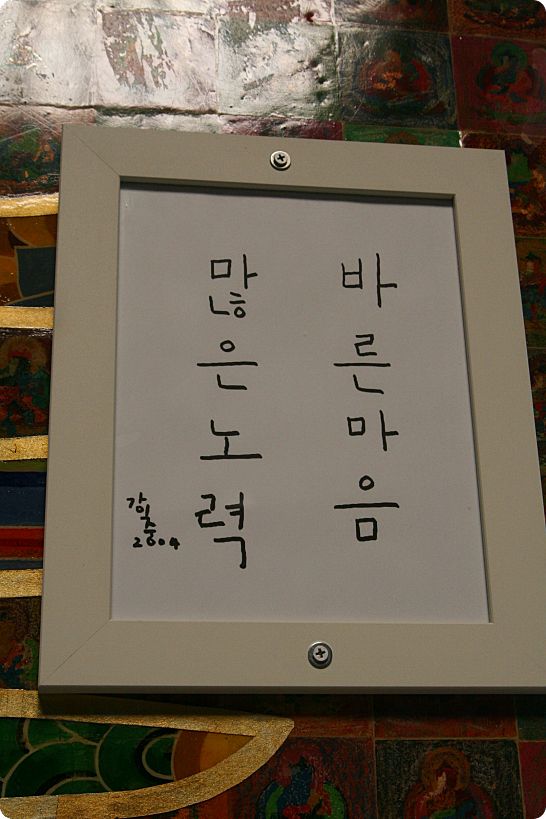 바른마음
많은노력
강익중
2004